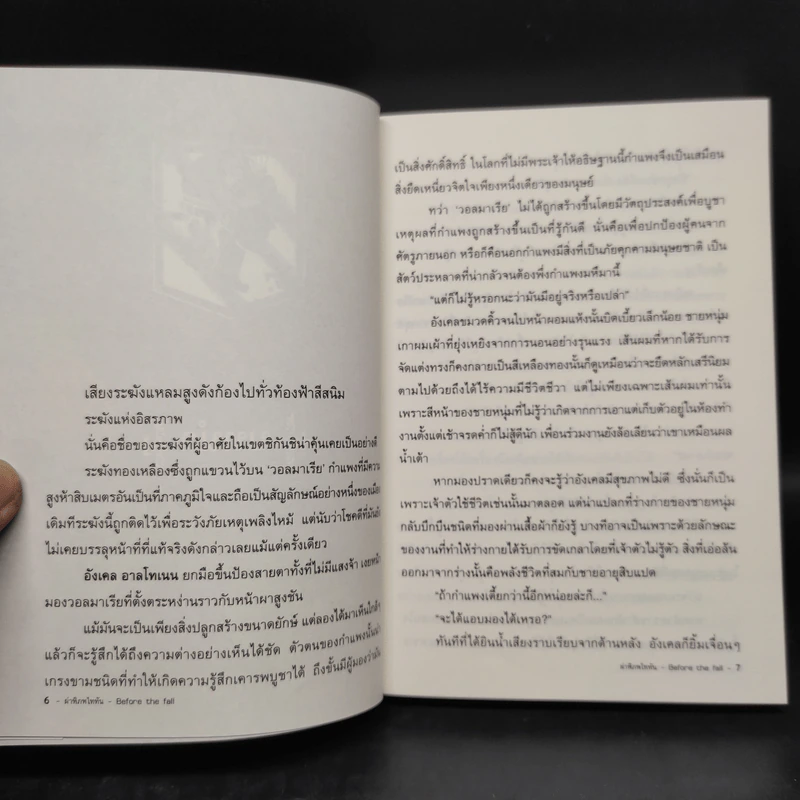 เสียงระฆังแหลมสูงดังก้องไปทั่วท้องฟ้าสีสนิม
ระฆังแห่งอิสรภาพ
นั่นคือชื่อของระฆังที่ผู้อาศัยในเขตชิกันชิน่าคุ้นเคยเป็นอย่างดี
ระฆังทองเหลืองซึ่งถูกแขวนไว้บน ‘วอลมาเรีย’ กำแพงที่มีความ
สูงห้าสิบเมตรอันเป็นที่ภาคภูมิใจและถือเป็นสัญลักษณ์อย่างหนึ่งของเมือง
เดิมทีระฆังนี้ถูกติดไว้เพื่อระวังภัยเหตุเพลิงไหม้ แต่นับว่าโชคดีที่มัน
ไม่เคยบรรลุหน้าที่ที่แท้จริงดังกล่าวเลยแม้แต่ครั้งเดียว
อังเคล อาลโทเนน ยกมือขึ้นป้องสายตาทั้งที่ไม่มีแสงจ้า เงยหน้า
มองวอลมาเรียที่ตั้งตระหง่านราวกับหน้าผาสูงชัน
แม้มันจะเป็นเพียงสิ่งปลูกสร้างขนาดยักษ์ แต่ลองได้มาเห็นใกล้ๆ
แล้วก็จะรู้สึกได้ถึงความต่างอย่างเห็นได้ชัด ตัวตนของกำแพงนั้น
เกรงขามชนิดที่ทำให้เกิดความรู้สึกเคารพบูชาได้ ถึงขั้นมีผู้มองว่ามัน
6 - ผ่าพิภพไททัน - Before the fall
เป็นสิ่งศักดิ์สิทธิ์ ในโลกที่ไม่มีพระเจ้าให้อธิษฐานนี้กำแพงจึงเป็นเสมือน
สิ่งยึดเหนี่ยวจิตใจเพียงหนึ่งเดียวของมนุษย์
ทว่า ‘วอลมาเรีย’ ไม่ได้ถูกสร้างขึ้นโดยมีวัตถุประสงค์เพื่อบูชา
เหตุผลที่กำแพงถูกสร้างขึ้นเป็นที่รู้กันดี นั่นคือเพื่อปกป้องผู้คนจาก
ศัตรูภายนอก หรือก็คือนอกกำแพงมีสิ่งที่เป็นภัยคุกคามมนุษยชาติ เป็น
สัตว์ประหลาดที่น่ากลัวจนต้องพึ่งกำแพงมหึมานี้
“แต่ก็ไม่รู้หรอกนะว่ามันมีอยู่จริงหรือเปล่า”
อังเคลขมวดคิ้วจนใบหน้าผอมแห้งนั้นบิดเบี้ยวเล็กน้อย ชายหนุ่ม
เกาผมเผ้าที่ยุ่งเหยิงจากการนอนอย่างรุนแรง เส้นผมที่หากได้รับการ
จัดแต่งทรงก็คงกลายเป็นสีเหลืองทองนั้นก็ดูเหมือนว่าจะยืดหลักเสรีนิยม
ตามไปด้วยถึงได้ไร้ความมีชีวิตชีวา แต่ไม่เพียงเฉพาะเส้นผมเท่านั้น
เพราะสีหน้าของชายหนุ่มที่ไม่รู้ว่าเกิดจากการเอาแต่เก็บตัวอยู่ในห้องทำ
งานตั้งแต่เช้าจรดค่ำก็ไม่สู้ดีนัก เพื่อนร่วมงานยังล้อเลียนว่าเขาเหมือนผล
น้ำเต้า
หากมองปราดเดียวก็คงจะรู้ว่าอังเคลมีสุขภาพไม่ดี ซึ่งนั่นก็เป็น
เพราะเจ้าตัวใช้ชีวิตเช่นนั้นมาตลอด แต่น่าแปลกที่ร่างกายของชายหนุ่ม
กลับบึกบึนชนิดที่มองผ่านเสื้อผ้าก็ยังรู้ บางทีอาจเป็นเพราะด้วยลักษณะ
ของงานที่ทำให้ร่างกายได้รับการขัดเกลาโดยที่เจ้าตัวไม่รู้ตัว สิ่งที่เอ่อล้น
ออกมาจากร่างนั้นคือพลังชีวิตที่สมกับชายอายุสิบแปด
“ถ้ากำแพงเตี้ยกว่านี้อีกหน่อยล่ะก็...”
“จะได้แอบมองได้เหรอ?”
ทันทีที่ได้ยินน้ำเสียงราบเรียบจากด้านหลัง อังเคลก็ยิ้มเจื่อนๆ
ผ่าพิภพไททัน - Before the fall - 7